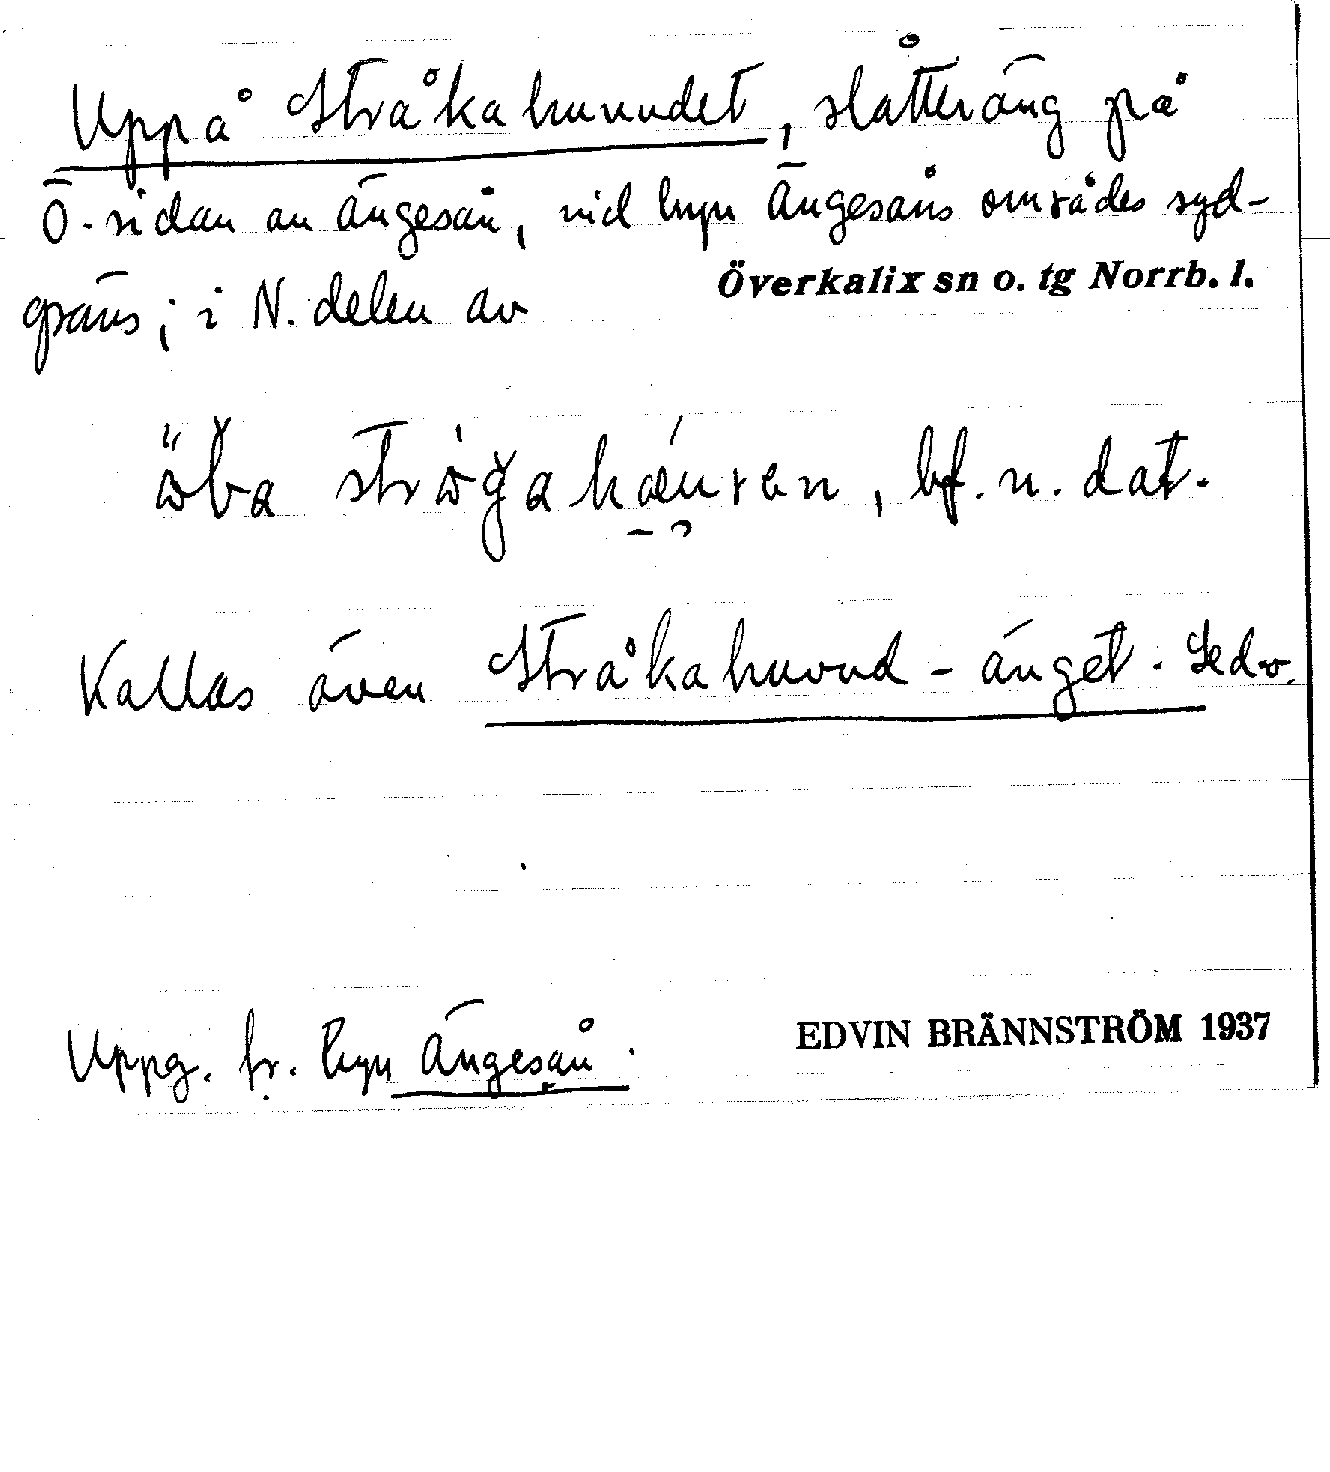 Uppå Stråkahuvudet, slåtteräng på
Ö-sidan av Ängesån, vid byn Ängesåns områdes syd-
gräns; i N. delen av
Överkalix sn o. tg Norrb. l.
bf. n. dat.
Kallas även Stråkahuvud-änget. Se d.o.
Uppg. fr. byn Ängesån.
EDVIN BRÄNNSTRÖM 1937